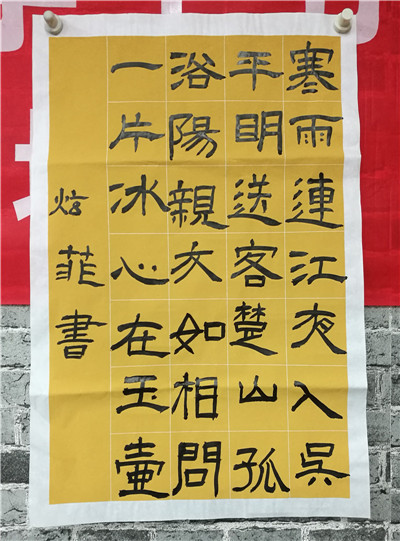 寒雨連江夜入吳
平明送客楚山孤
浴陽親友如相問
一片冰心在玉壺
炫菲書